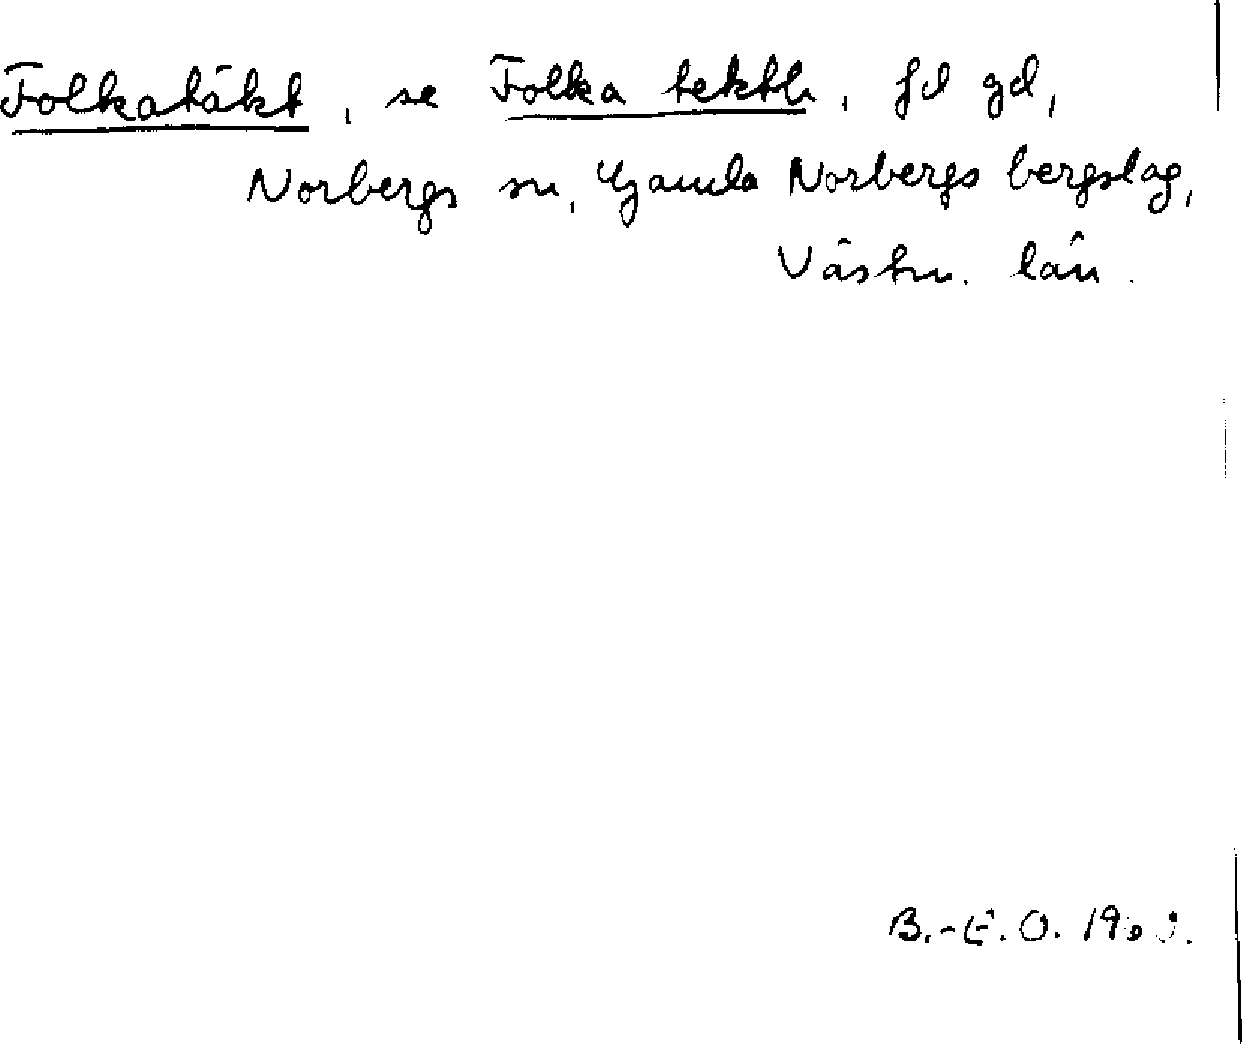 Folkatäkt, se Folka tekth, fd gd,
Norbergs sn, Gamla Norbergs bergslag,
Västm. län.
B.-E. O.